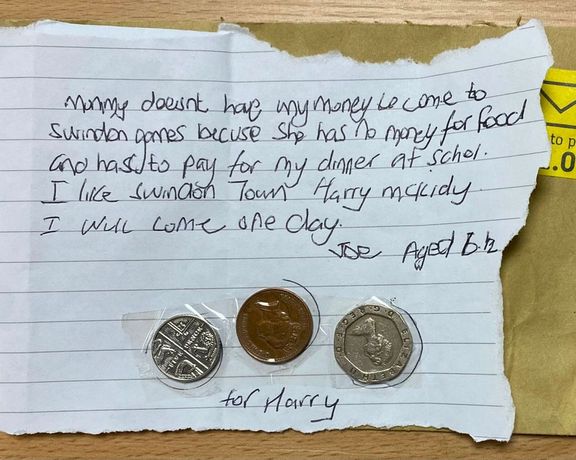 Mommy doesnt have any money to come to
Swindon games becuse she has no money for food
and hasd to pay for my dinner at schol.
I like swindon Town Harry mckidy.
I will come one day.
Joe Aged 6½
for Harry
to p
.0
FIVE PENCE
ELIZABETH